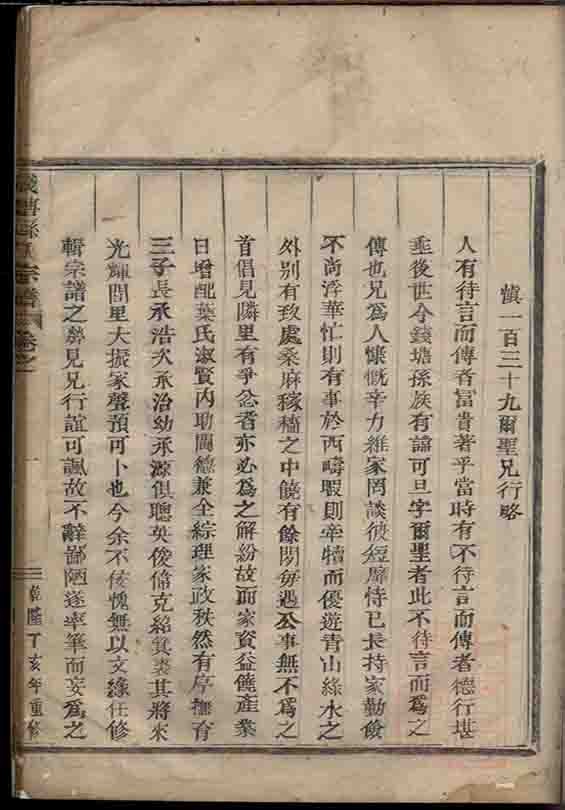 慎一百三十九爾聖兄行略
人有待言而傳者富貴著乎當時有不待言而傳者德行堪
垂後世今錢塘孫族有諱可旦字爾聖者此不待言而為之
傳也兄為人慷慨辛力維家罔談彼短靡恃己長持家勤儉
不尚浮華忙則有事於西疇暇則牽犢而優遊青山綠水之
外別有玫處桑麻稼穡之中饒有餘閒每遇公事無不為之
首倡見隣里有爭忿者亦必為之解紛故而家資益饒產業
日增配葉氏淑賢內助閫德兼全綜理家政秩然有序撫育
三子長承浩次承治幼承源俱聰英俊偹克紹箕裘其將來
光輝閭里大振家聲預可卜也今余不佞愧無以文緣任修
輯宗譜之勞見兄行誼可諷故不辭鄙陋遂率筆而妄為之
錢塘孫氏宗譜 卷之一
一
乾隆丁亥年重修